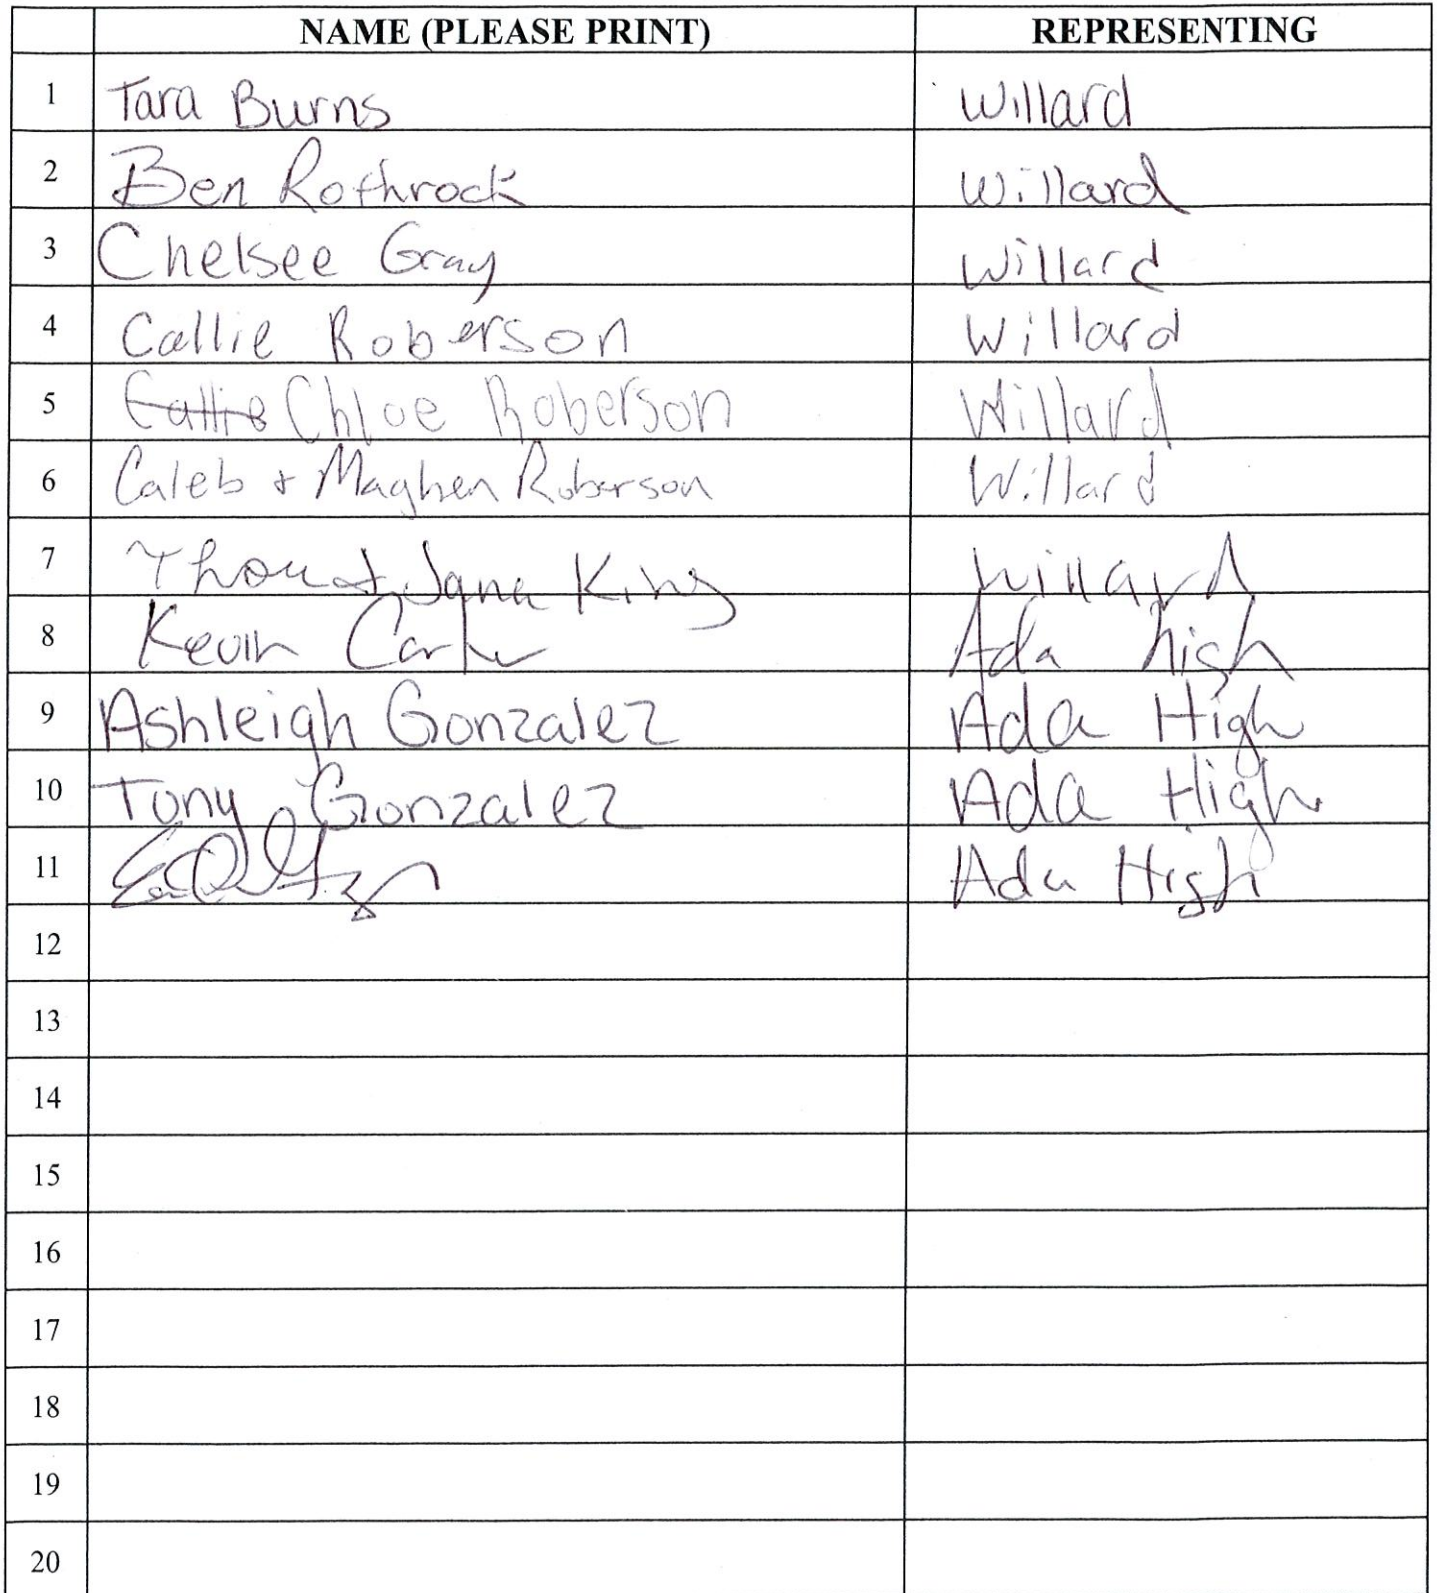 NAME (PLEASE PRINT) REPRESENTING
1 Tara Burns Willard
2 Ben Rothrock Willard
3 Chelsee Gray Willard
4 Callie Roberson Willard
5 Callie Chloe Roberson Willard
6 Caleb + Maghen Roberson Willard
7 & Jana King Willard
8 Kevin Willard Ada high
9 Ashleigh Gonzalez Ada High
10 Tony Gonzalez Ada High
11 Ada High
12
13
14
15
16
17
18
19
20